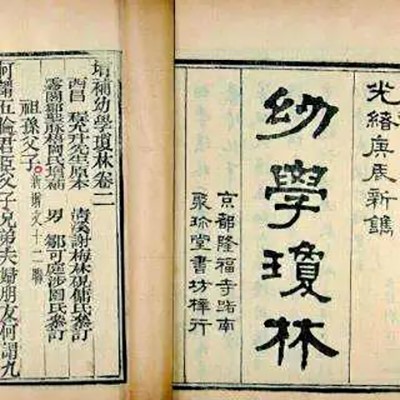 光緒庚辰新鐫
幼學瓊林
京都隆福寺路南
聚珍堂書坊梓行
增補幼學瓊林卷二
西昌 程允升先生原本 清溪謝梅林硯傭氏參訂
霧閣鄒聖脉梧岡氏增補 男 鄒可庭涉園氏參訂
祖孫父子 新增文十二聯
何謂五倫君臣父子兄弟夫婦朋友何謂九